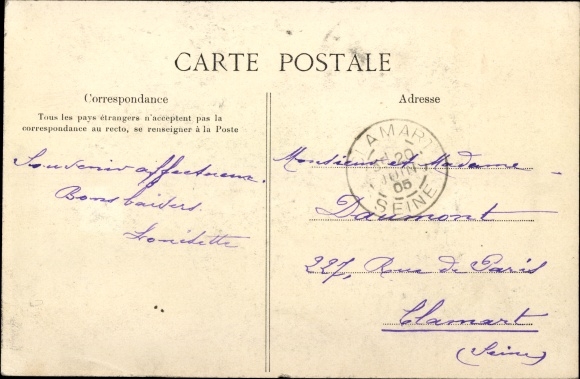 CARTE POSTALE
Correspondance
Tous les pays étrangers n'acceptent pas la
correspondance au recto, se renseigner à la Poste
Souvenir affectueux.
Bons baisers.
Adresse
CLAMART
20
JUIN
05
SEINE
Monsieur et Madame
Daumont
227, Rue de Paris
Clamart
(Seine)